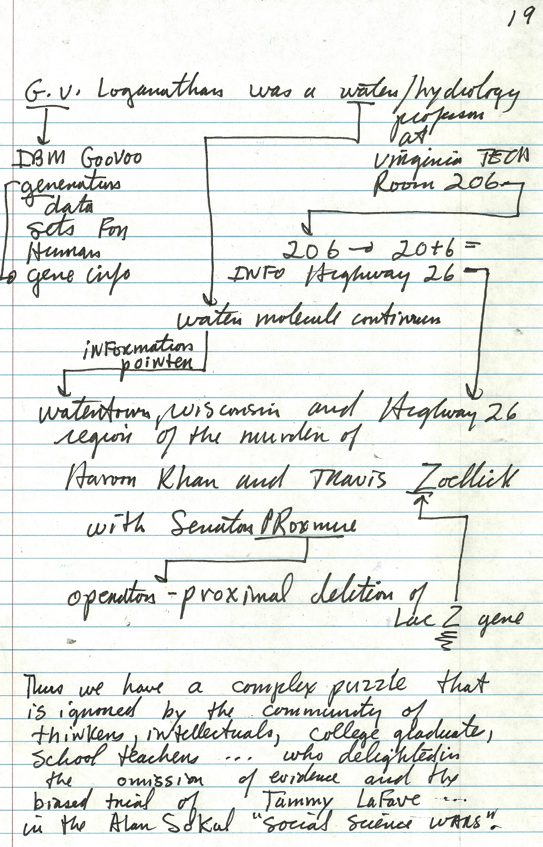 19
G.V. Loganathan was a water/hydrology
professor
at
Virginia TECH
Room 206
IBM GooVoo
generations
data
sets For
Human
gene info
206 → 20+6 =
INFO Highway 26
water molecule continuum
information
pointer
watertown, wisconsin and Highway 26
region of the murder of
Aaron Khan and Travis Zoellick
with Senator PRoxmire
operator-proximal deletion of
Lac Z gene
Thus we have a complex puzzle that
is ignored by the community of
thinkers, intellectuals, college graduate,
School teachers ... who delighted in
the omission of evidence and the
biased trial of Tammy LaFave ...
in the Alan SoKal "Social Science WARS".